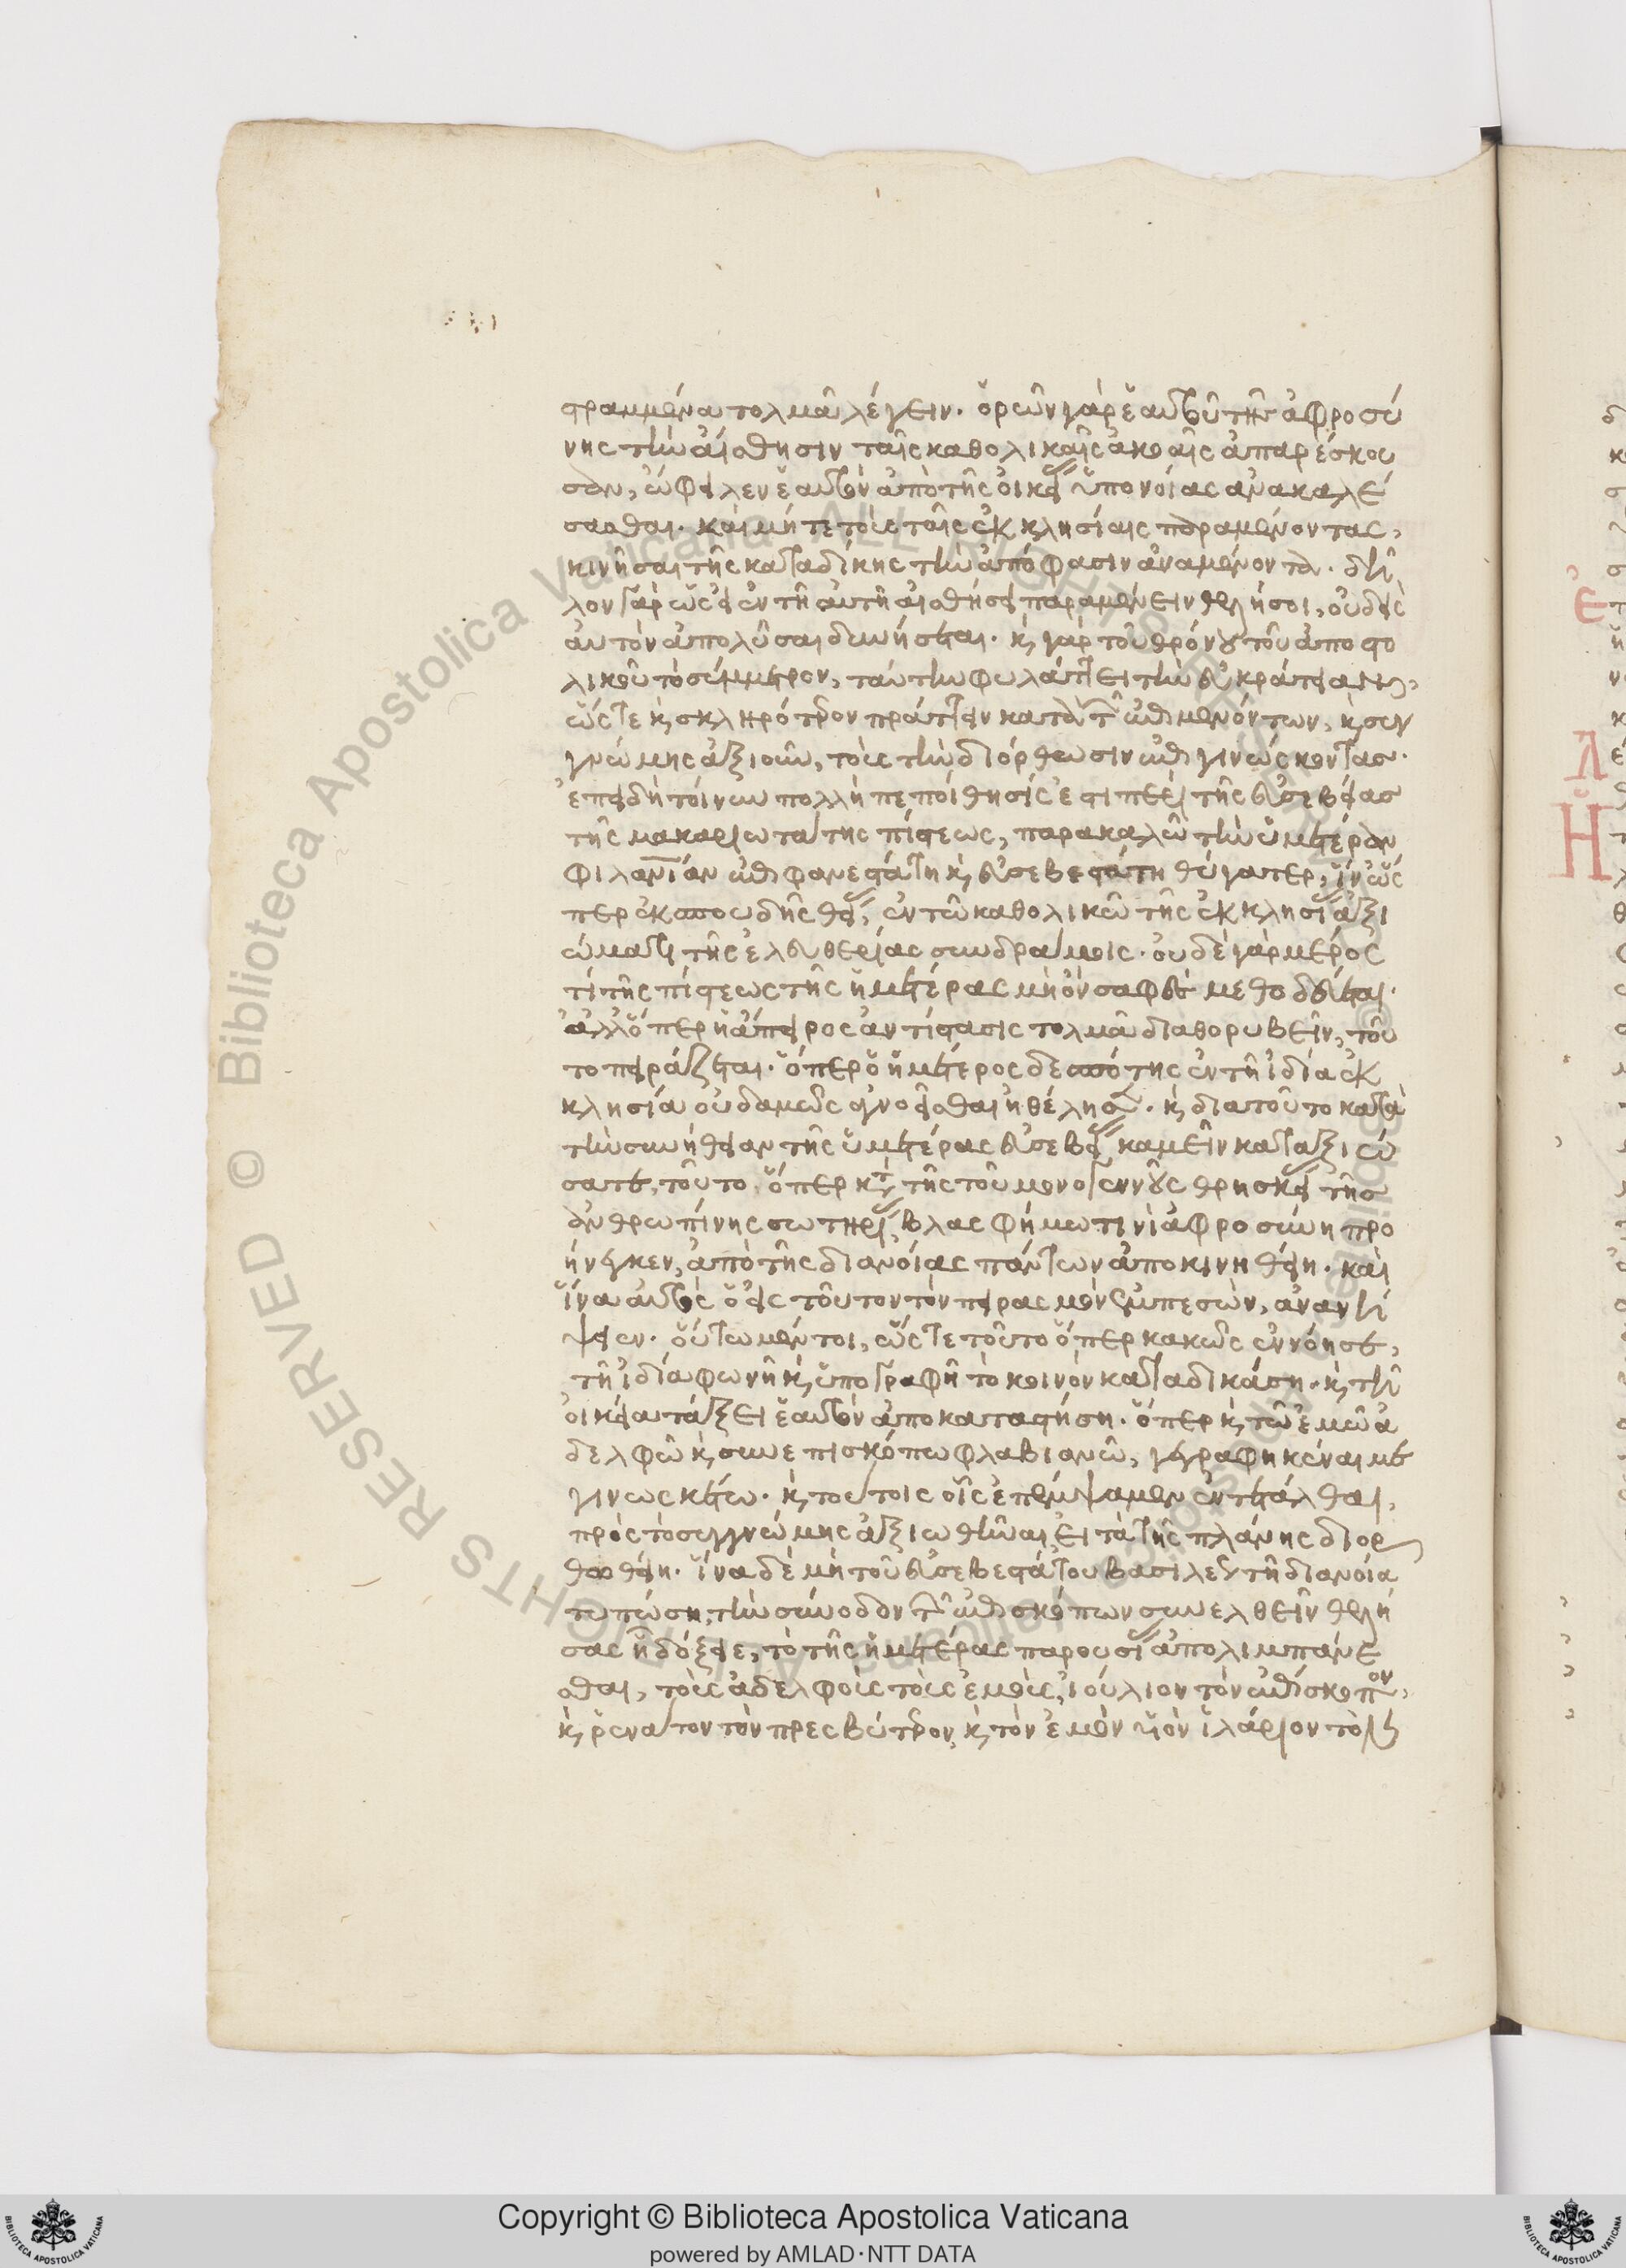 στραμμένα τολμᾶ λέγειν. ὁρῶν γὰρ ἑαυτοῦ τῆς ἀφροσύ
νης τὴν αἴσθησιν ταῖς καθολικαῖς ἀκοαῖς ἀπαρέσκου
σαν, ὤφειλεν ἑαυτὸν ἀπὸ τῆς οἰκείας ὑπονοίας ἀνακαλέ
σασθαι. καὶ μήτε τοὺς ταῖς ἐκκλησίαις παραμένοντας,
κινῆσαι τῆς καταδίκης τὴν ἀπόφασιν ἀναμένοντα. δῆ
λον γὰρ ὡς εἰ ἐν τῇ αὐτῇ αἰσθήσει παραμένειν θελήσοι, οὐδεὶς
αὐτὸν ἀπολῦσαι δυνήσεται. καὶ γὰρ τοῦ θρόνου τοῦ ἀποστο
λικοῦ τὸ σύμμετρον, ταύτην φυλάττει τὴν εὐκράτειαν,
ὥστε καὶ σκληρότερον πράττειν κατὰ τῶν ἐπιμενόντων, καὶ συγ
γνώμης ἀξιοῦν, τοὺς τὴν διόρθωσιν ἐπιγινώσκοντας.
ἐπειδὴ τοίνυν πολλὴ πεποίθησίς ἐστι περὶ τῆς εὐσεβείας
τῆς μακαριωτάτης πίστεως, παρακαλῶ τὴν ὑμετέραν
φιλανίαν ἐπιφανεστάτη καὶ εὐσεβεστάτη θύγατερ, ἵν' ὥς
περ ἐκ σπουδῆς θείας, ἐν τῶ καθολικῶ τῆς ἐκκλησίας ἀξι
ώματι τῆς ἐλευθερίας συνδράμοις. οὐδὲ γὰρ μέρος
τί τῆς πίστεως τῆς ἡμετέρας μὴ ὂν σαφὲς μεθοδεύεται.
ἀλλ' ὅπερ ἡ ἄπειρος ἀντίστασις τολμᾶ διαθορυβεῖν, τοῦ
το πειράζεται. ὅπερ ὁ ἡμέτερος δεσπότης ἐν τῇ ἰδία ἐκ
κλησία οὐδαμῶς γενέσθαι ἠθέλησεν. καὶ διατοῦτο κατὰ
τὴν συνήθειαν τῆς ὑμετέρας εὐσεβείας καμεῖν καταξιώ
σατε, τοῦτο ὅπερ κατὰ τῆς τοῦ μονογεννοῦς θρησκείας τῆς
ἀνθρωπίνης σωτηρίας, βλασφήμω τινὶ ἀφροσύνη προ
ήνεγκεν, ἀπὸ τῆς διανοίας πάντων ἀποκινηθείη. καὶ
ἵνα αὐτὸς ὁ εἰς τοῦτον τὸν πειρασμὸν ἐμπεσὼν, ἀνανή
ψειεν. οὕτω μέντοι, ὥστε τοῦτο ὅπερ κακῶς ἐννόησε,
τῇ ἰδία φωνῇ καὶ ὑπογραφῇ τὸ κοινὸν καταδικάση. καὶ τῇ
οἰκεία τάξει ἑαυτὸν ἀποκαταστήση. ὅπερ καὶ τῶ ἐμῶ ἀ
δελφῶ καὶ συνεπισκόπω φλαβιανῶ, γεγραφηκέναι με
γινωσκέτω. καὶ τούτοις οἷς ἐπέμψαμεν ἐντετάλθαι,
πρὸς τὸ συγγνώμης ἀξιωθῆναι, εἰ τὰ τῆς πλάνης διορ
θωθείη. ἵνα δὲ μὴ τοῦ εὐσεβεστάτου βασιλέως τῇ διανοία
τυπώση, τὴν σύνοδον τῶν ἐπισκόπων συνελθεῖν θελή
σας ἢ δόξειε, τὸ τῆς ἡμετέρας παρουσίας ἀπολιμπάνε
σθαι, τοὺς ἀδελφοὺς τοὺς ἐμοὺς, ἰούλιον τὸν ἐπίσκοπον,
καὶ ῥενάτον τὸν πρεσβύτερον, καὶ τὸν ἐμὸν υἱὸν ἱλάριον τὸν
Copyright © Biblioteca Apostolica Vaticana
powered by AMLAD·NTT DATA